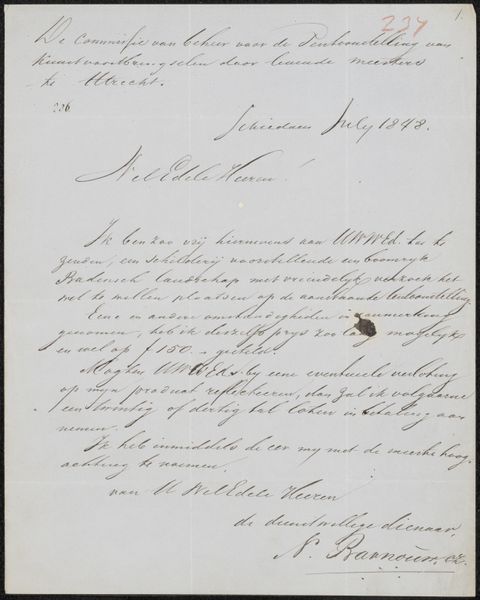 237
1.
De Commissie van beheer voor de Tentoonstelling van
kunstvoortbrengselen door levende meesters
te Utrecht.
226
Schiedam July 1848.
Wel Edele Heeren!
Ik ben zoo vrij hiernevens aan UWWEd. toe te
zenden, een schilderij voorstellende een boomryk
Badensch landschap met vriendelyk verzoek het
wel te willen plaatsen op de aanstaande tentoonstelling.
Een en andere omstandigheden in aanmerking
genomen, heb ik deszelfs prys zoo laag mogelyk
en wel op f 150.- gesteld.
Mogten UWWEds. by eene eventueele verloting
op myn produkt reflecteeren, dan zal ik volgaarne
een twintig of dertig tal loten in betaling aan
nemen.
Ik heb inmiddels de eer my met de meeste hoog-
achting te noemen.
van U Wel Edele Heeren
de dienstwillige dienaar,
N.